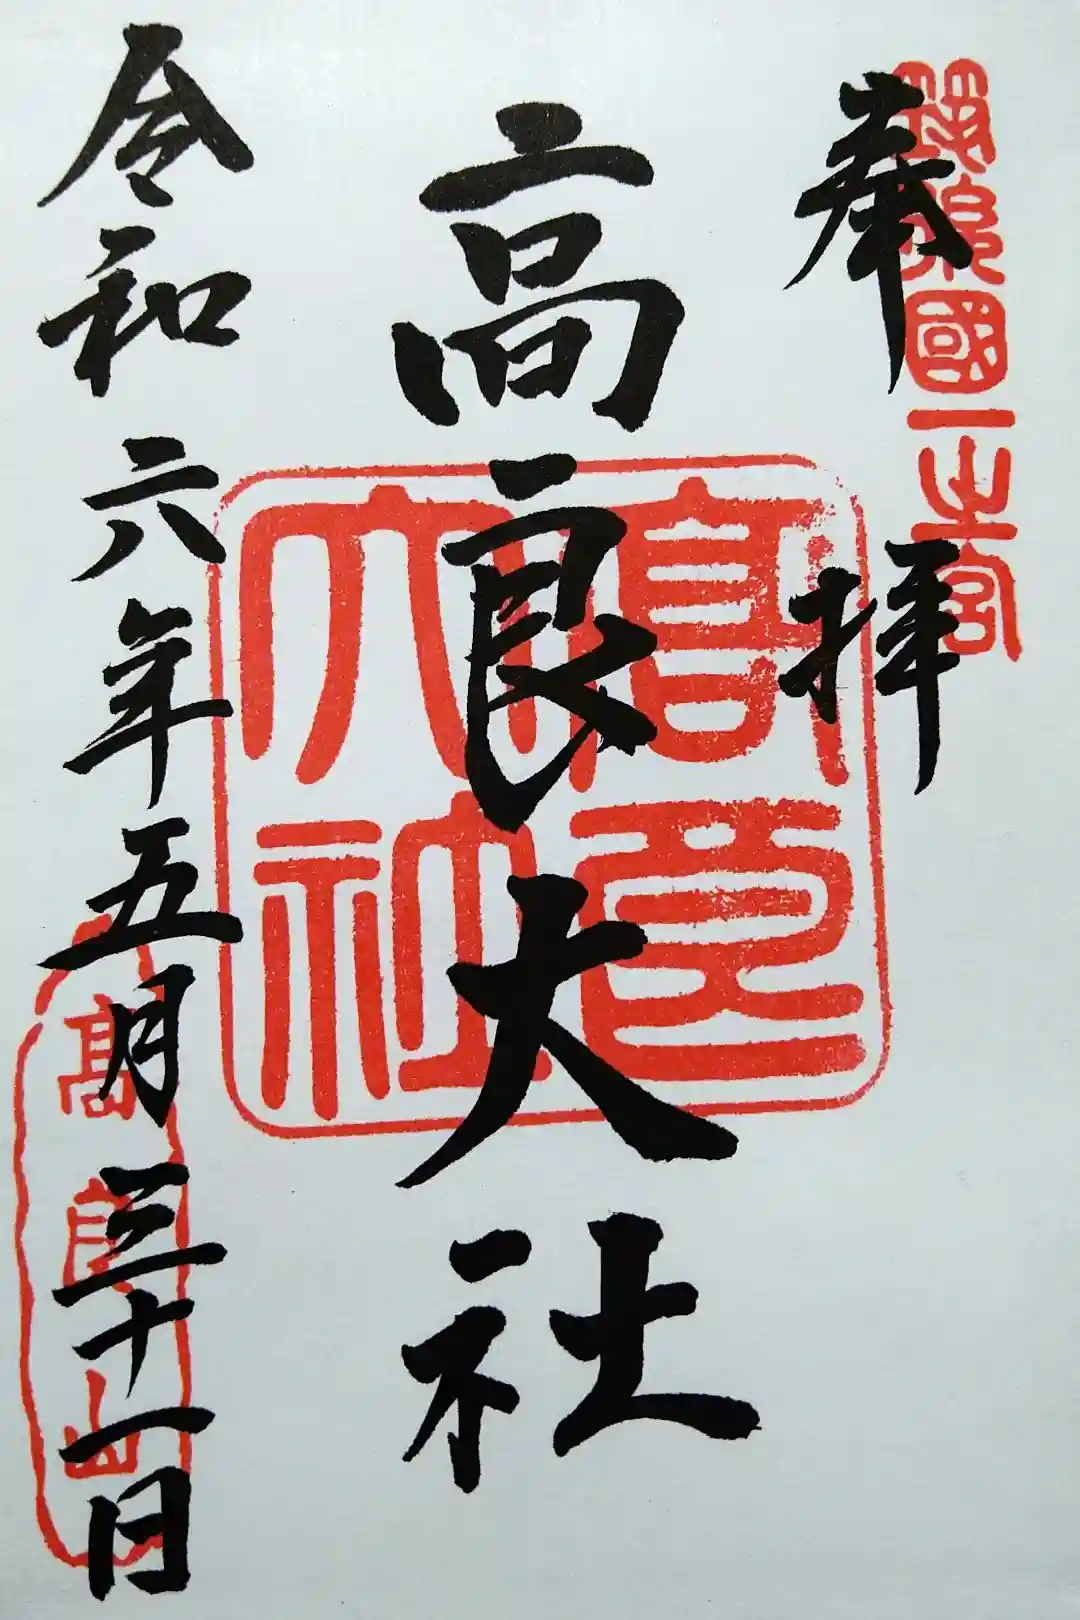 筑後國一之宮
奉拝
高良大社
高良大社
令和六年五月三十一日
高良山